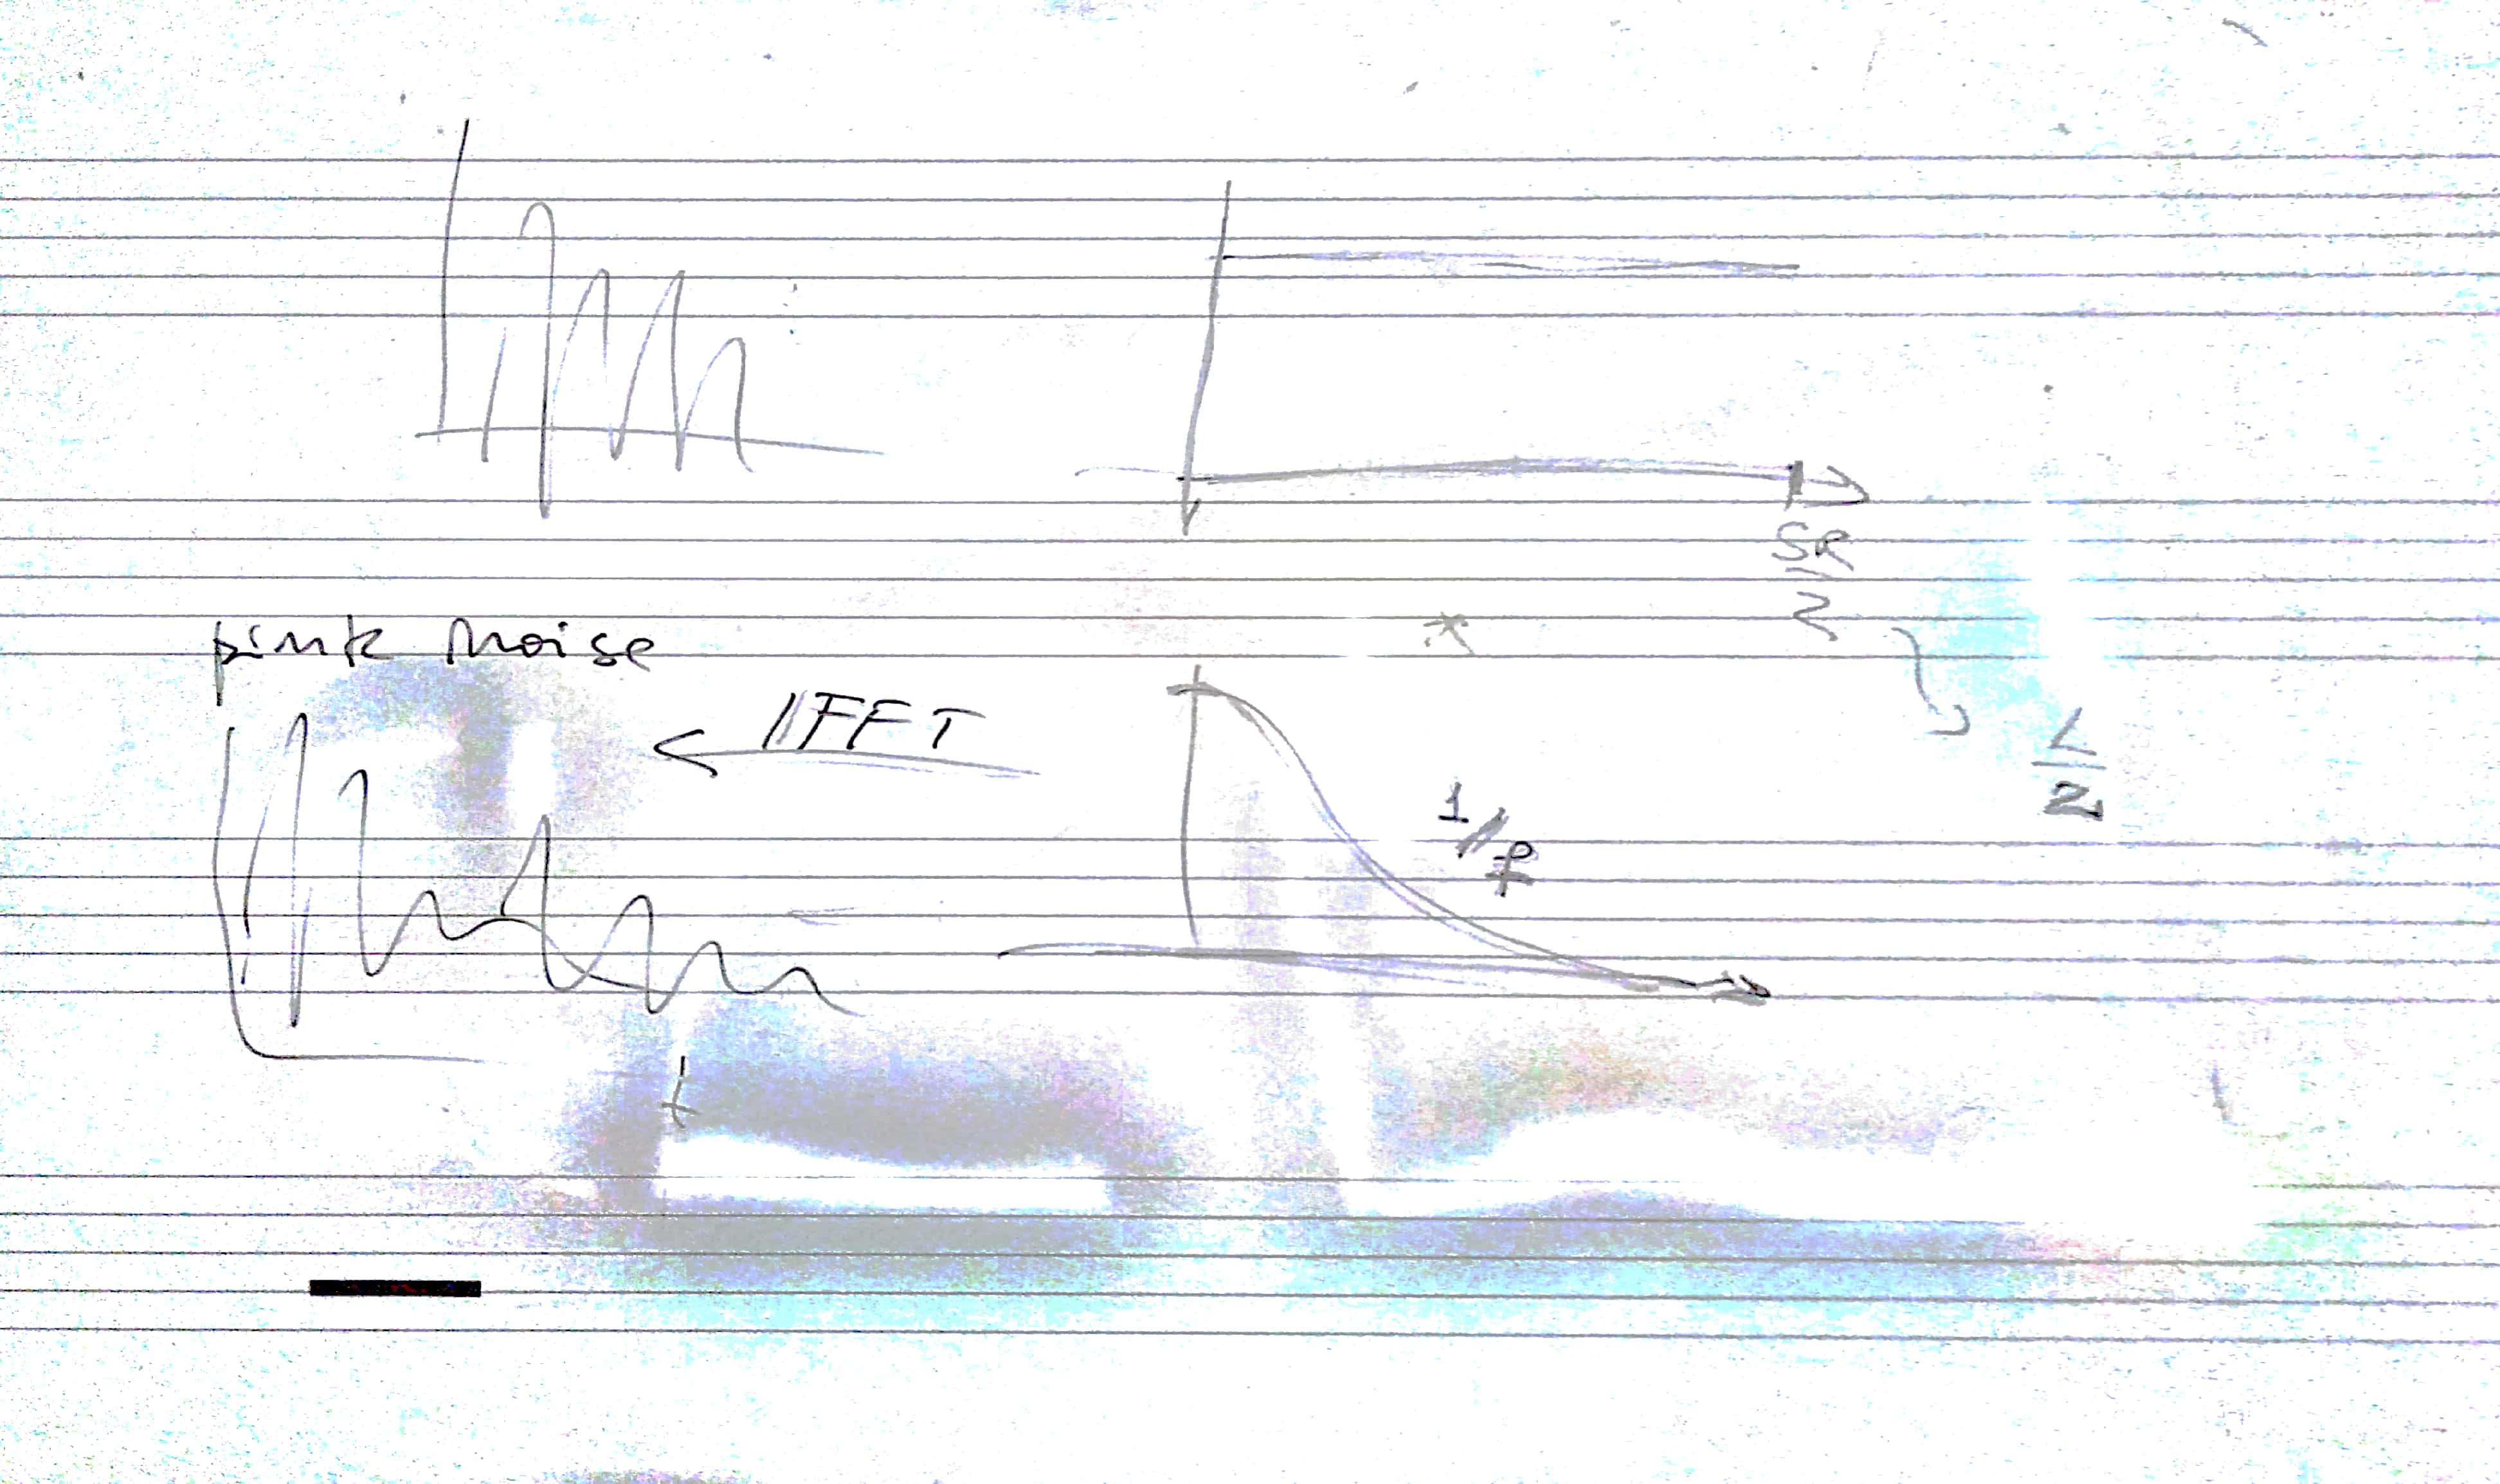 SR
2
pink noise
*
IFFT
L
2
1/f
t